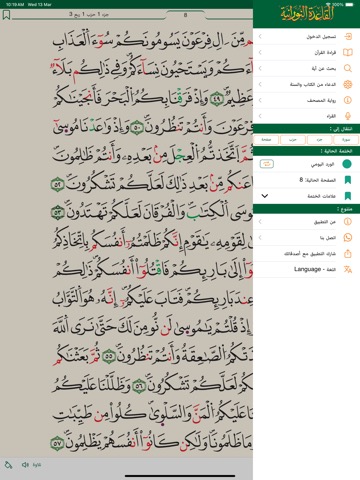 10:19 AM Wed 13 Mar
200%
جزء 1 حزب 1 ربع 3
8
القاعدة النورانية
تسجيل الدخول
قراءة القرآن
بحث عن آية
الدعاء من الكتاب والسنة
رواية المصحف
القراء
انتقال إلى :
سورة
جزء
حزب
صفحة
الختمة الحالية :
الورد اليومي
الصفحة الحالية: 8
علامات الختمة
متنوع :
عن التطبيق
اتصل بنا
شارك التطبيق مع أصدقائك
اللغة - Language
مِّنْ ءَالِ فِرْعَوْنَ يَسُومُونَكُمْ سُوٓءَ ٱلْعَذَابِ
أَبْنَآءَكُمْ وَيَسْتَحْيُونَ نِسَآءَكُمْ وَفِى ذَٰلِكُم بَلَآءٌ
عَظِيمٌ ٤٩ وَإِذْ فَرَقْنَا بِكُمُ ٱلْبَحْرَ فَأَنجَيْنَٰكُمْ
فِرْعَوْنَ وَأَنتُمْ تَنظُرُونَ ٥٠ وَإِذْ وَٰعَدْنَا مُوسَىٰٓ
ٱتَّخَذْتُمُ ٱلْعِجْلَ مِنۢ بَعْدِهِۦ وَأَنتُمْ ظَٰلِمُونَ
عَنكُم مِّنۢ بَعْدِ ذَٰلِكَ لَعَلَّكُمْ تَشْكُرُونَ ٥٢
مُوسَى ٱلْكِتَٰبَ وَٱلْفُرْقَانَ لَعَلَّكُمْ تَهْتَدُونَ ٥٣
لِقَوْمِهِۦ يَٰقَوْمِ إِنَّكُمْ ظَلَمْتُمْ أَنفُسَكُم بِٱتِّخَاذِكُمُ
إِلَىٰ بَارِئِكُمْ فَٱقْتُلُوٓا۟ أَنفُسَكُمْ ذَٰلِكُمْ
عِندَ بَارِئِكُمْ فَتَابَ عَلَيْكُمْ إِنَّهُۥ هُوَ ٱلتَّوَّابُ
وَإِذْ قُلْتُمْ يَٰمُوسَىٰ لَن نُّؤْمِنَ لَكَ حَتَّىٰ نَرَى ٱللَّهَ
فَأَخَذَتْكُمُ ٱلصَّٰعِقَةُ وَأَنتُمْ تَنظُرُونَ ٥٥ ثُمَّ بَعَثْنَٰكُم
مَوْتِكُمْ لَعَلَّكُمْ تَشْكُرُونَ ٥٦ وَظَلَّلْنَا عَلَيْكُمُ
عَلَيْكُمُ ٱلْمَنَّ وَٱلسَّلْوَىٰ كُلُوا۟ مِن طَيِّبَٰتِ
وَمَا ظَلَمُونَا وَلَٰكِن كَانُوٓا۟ أَنفُسَهُمْ يَظْلِمُونَ ٥٧